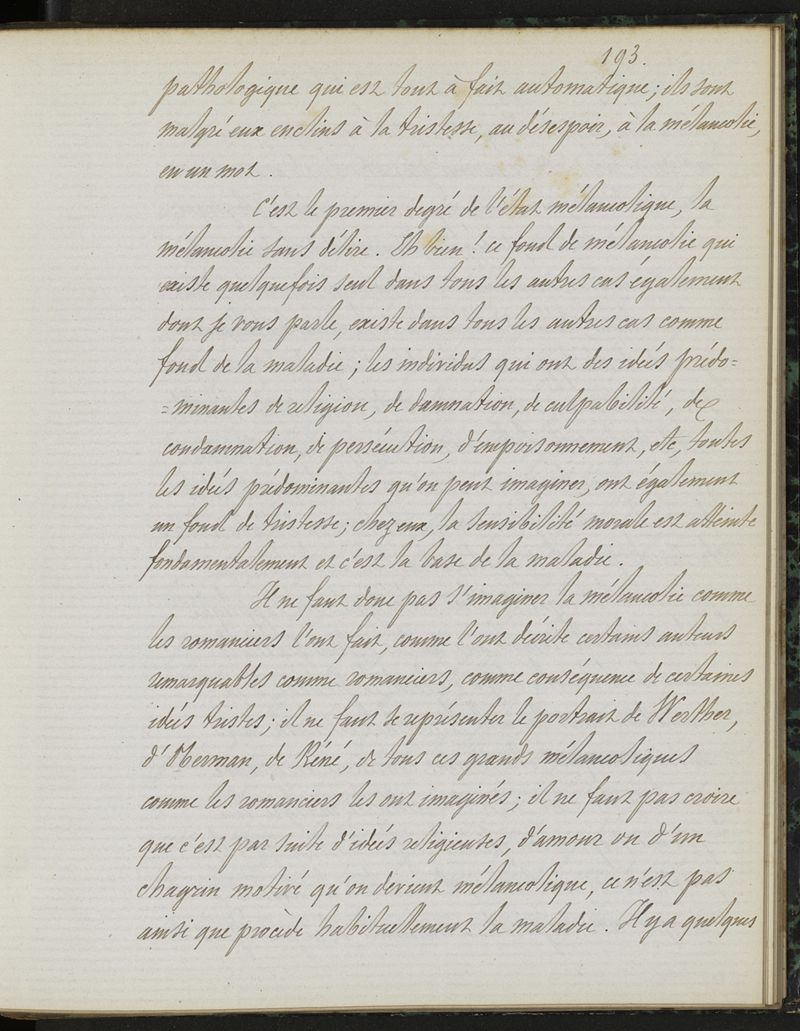 193.
pathologique qui est tout à fait automatique; ils sont
malgré eux enclins à la tristesse, au désespoir, à la mélancolie,
en un mot.
C'est le premier degré de l'état mélancolique, la
mélancolie sans délire. Eh bien! ce fond de mélancolie qui
existe quelquefois seul dans tous les autres cas également
dont je vous parle, existe dans tous les autres cas comme
fond de la maladie; les individus qui ont des idées prédo=
=minantes de religion, de damnation, de culpabilité, de
condamnation, de persécution, d'empoisonnement, etc, toutes
les idées prédominantes qu'on peut imaginer, ont également
un fond de tristesse; chez eux, la sensibilité morale est atteinte
fondamentalement et c'est la base de la maladie.
Il ne faut donc pas s'imaginer la mélancolie comme
les romanciers l'ont fait, comme l'ont décrite certains auteurs
remarquables comme romanciers, comme conséquence de certaines
idées tristes; il ne faut se représenter le portrait de Werther,
d'Oberman, de Réné, de tous ces grands mélancoliques
comme les romanciers les ont imaginés; il ne faut pas croire
que c'est par suite d'idées religieuses, d'amour ou d'un
chagrin motivé qu'on devient mélancolique, ce n'est pas
ainsi que procède habituellement la maladie. Il y a quelques